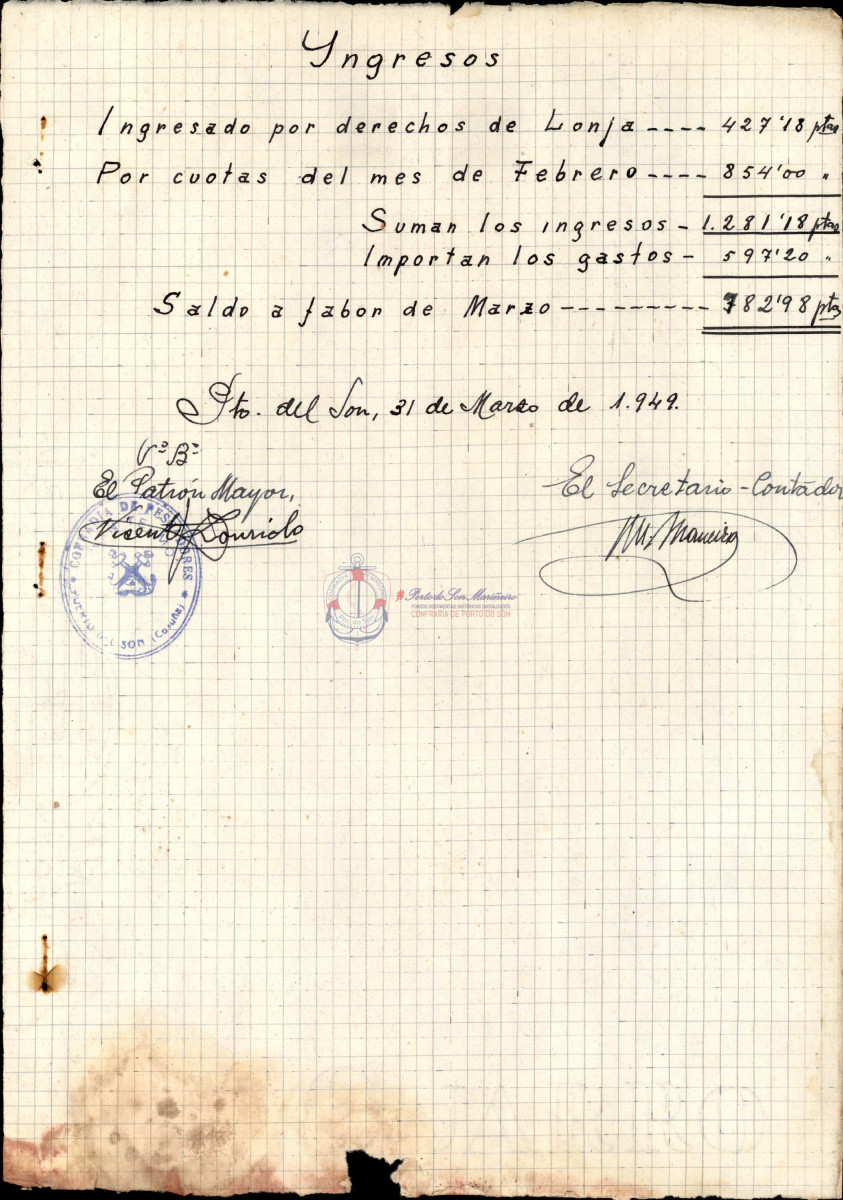 Yngresos
Ingresado por derechos de Lonja ---- 427'18 ptas
Por cuotas del mes de Febrero ---- 854'00 "
Suman los ingresos - 1.281'18 ptas
Importan los gastos - 597'20 "
Saldo a fabor de Marzo --------- 782'98 ptas
Pto. del Son, 31 de Marzo de 1.949.
Vº Bº
El Patrón Mayor,
El Secretario-Contador
Vicente
COFRADIA DE PESCADORES
PUERTO DEL SON (Coruña)
#Porto do Son Mariñeiro
FONDOS DOCUMENTAIS HISTÓRICOS DIXITALIZADOS
CONFRARÍA DE PORTO DO SON